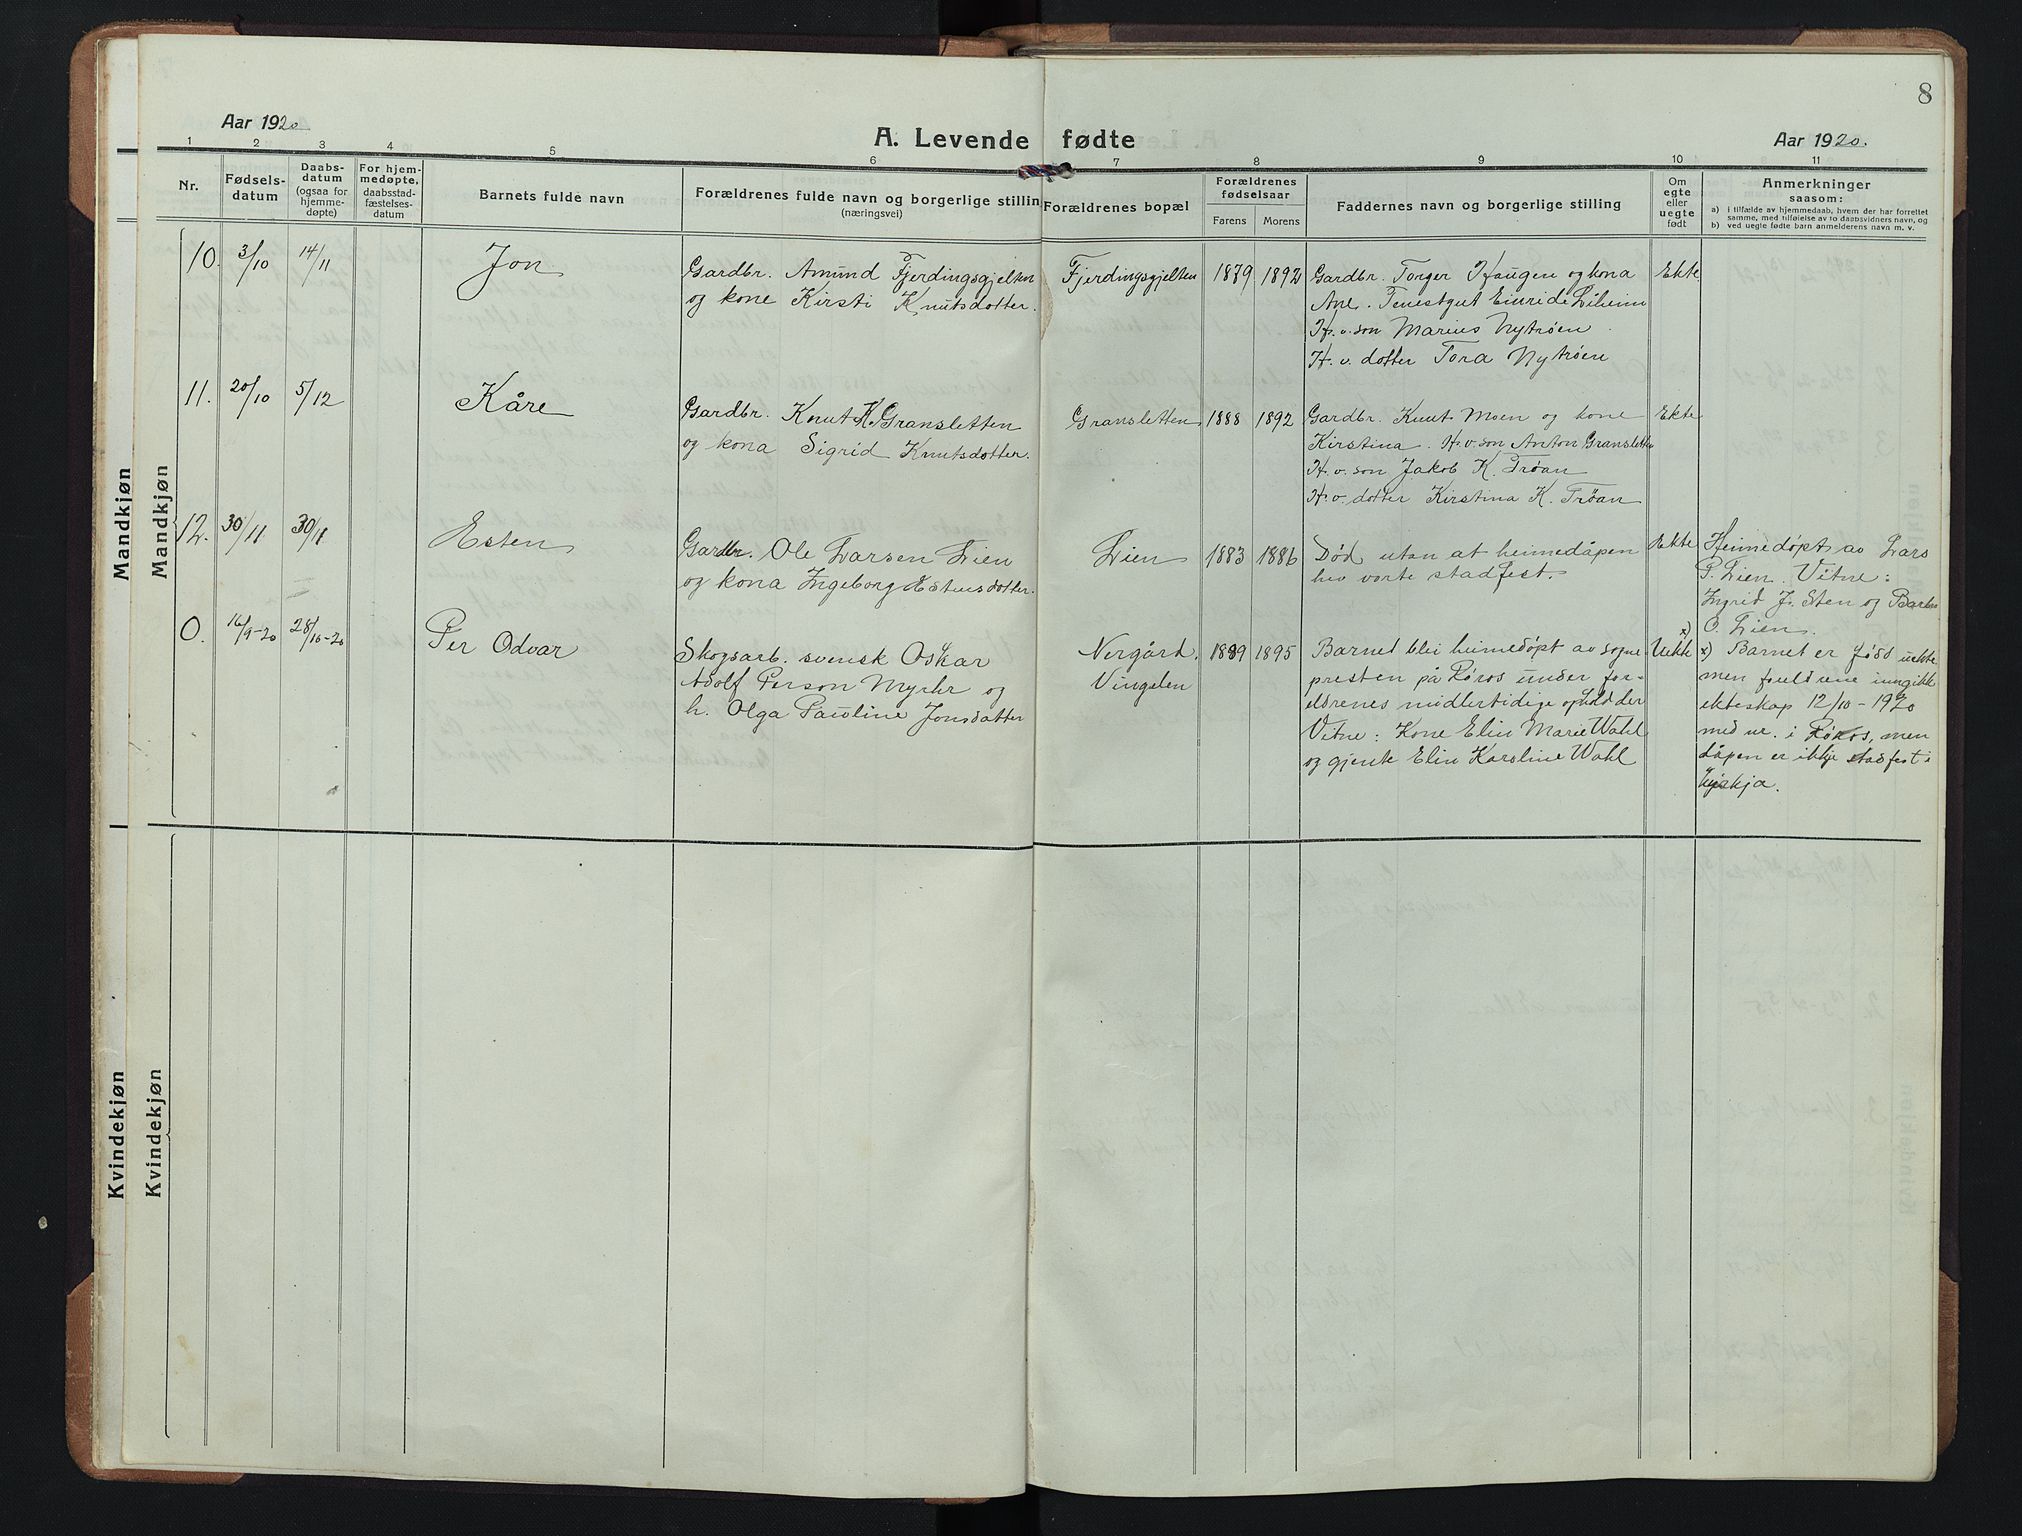 8
Aar 1920
A. Levende fødte
Aar 1920.
1 2 3 4 5 6 7 8 9 10 11
Nr.
Fødsels-
datum
Daabs-
datum
(ogsaa for
hjemme-
døpte)
For hjem-
medøpte,
daabsstad-
fæstelses-
datum
Barnets fulde navn
Forældrenes fulde navn og borgerlige stilling
(næringsvei)
Forældrenes bopæl
Forældrenes
fødselsaar
Farens Morens
Faddernes navn og borgerlige stilling
Om
egte
eller
uegte
født
Anmerkninger
saasom:
a) i tilfælde av hjemmedaab, hvem der har forrettet
samme, med tilføielse av to daabsvidners navn, og
b) ved uegte fødte barn anmelderens navn m. v.
Mandkjøn
Mandkjøn
10. 3/10 14/11 Jon
Gardbr. Amund Fjerdingsgjelten
og kone Kirsti Knutsdotter.
Fjerdingsgjelten 1879 1892
Gardbr. Torger Haugen og kona
Ane. Tenestgut Einride Liheim
H. v. son Marius Nytrøen
H. v. dotter Tora Nytrøen
Ekte
11. 20/10 5/12 Kåre
Gardbr. Knut K. Gransletten
og kona Sigrid Knutsdotter.
Gransletten 1888 1892
Gardbr. Knut Moen og kone
Kirstina. H. v. son Anton Gransletten
H. v. son Jakob K. Trøan
H. v. dotter Kirstina K. Trøan
Ekte
12. 30/11 30/11 Esten
Gardbr. Ole Larsen Lien
og kona Ingeborg Estensdotter.
Lien 1883 1886
Død utan at heimedåpen
hev vorte stadfest.
Ekte
Heimedøpt av Lars
P. Lien. Vitne:
Ingrid J. Sten og Barbro
O. Lien.
0. 16/9-20 28/10-20 Per Odvar
Skogsarb. svensk Oskar
Adolf Person Myrhr og
h. Olga Pauline Jonsdatter
Nergård.
Vingelen
1889 1895
Barnet blei heimedøpt av sogne
presten på Røros under for-
eldrenes midlertidige ophold der
Vitne: Kone Elin Marie Wahl
og gjente Elin Karoline Wahl
x)
Uekte
x) Barnet er født uekte
men foreldrene inngikk
ekteskap 12/10 - 1920
med ur. i Røros, men
dåpen er ikkje stadfest i
kyrkja.
Kvindekjøn
Kvindekjøn